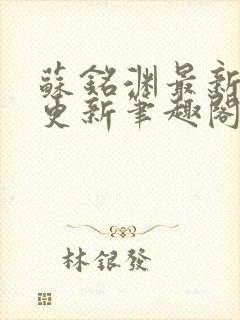 蘇銘淵最新
更新筆趣閣
林銀發